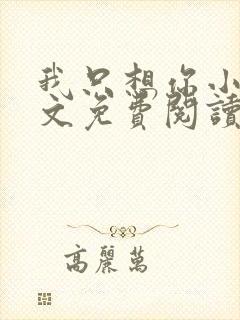 我只想你小
文免費閱讀
高麗萬